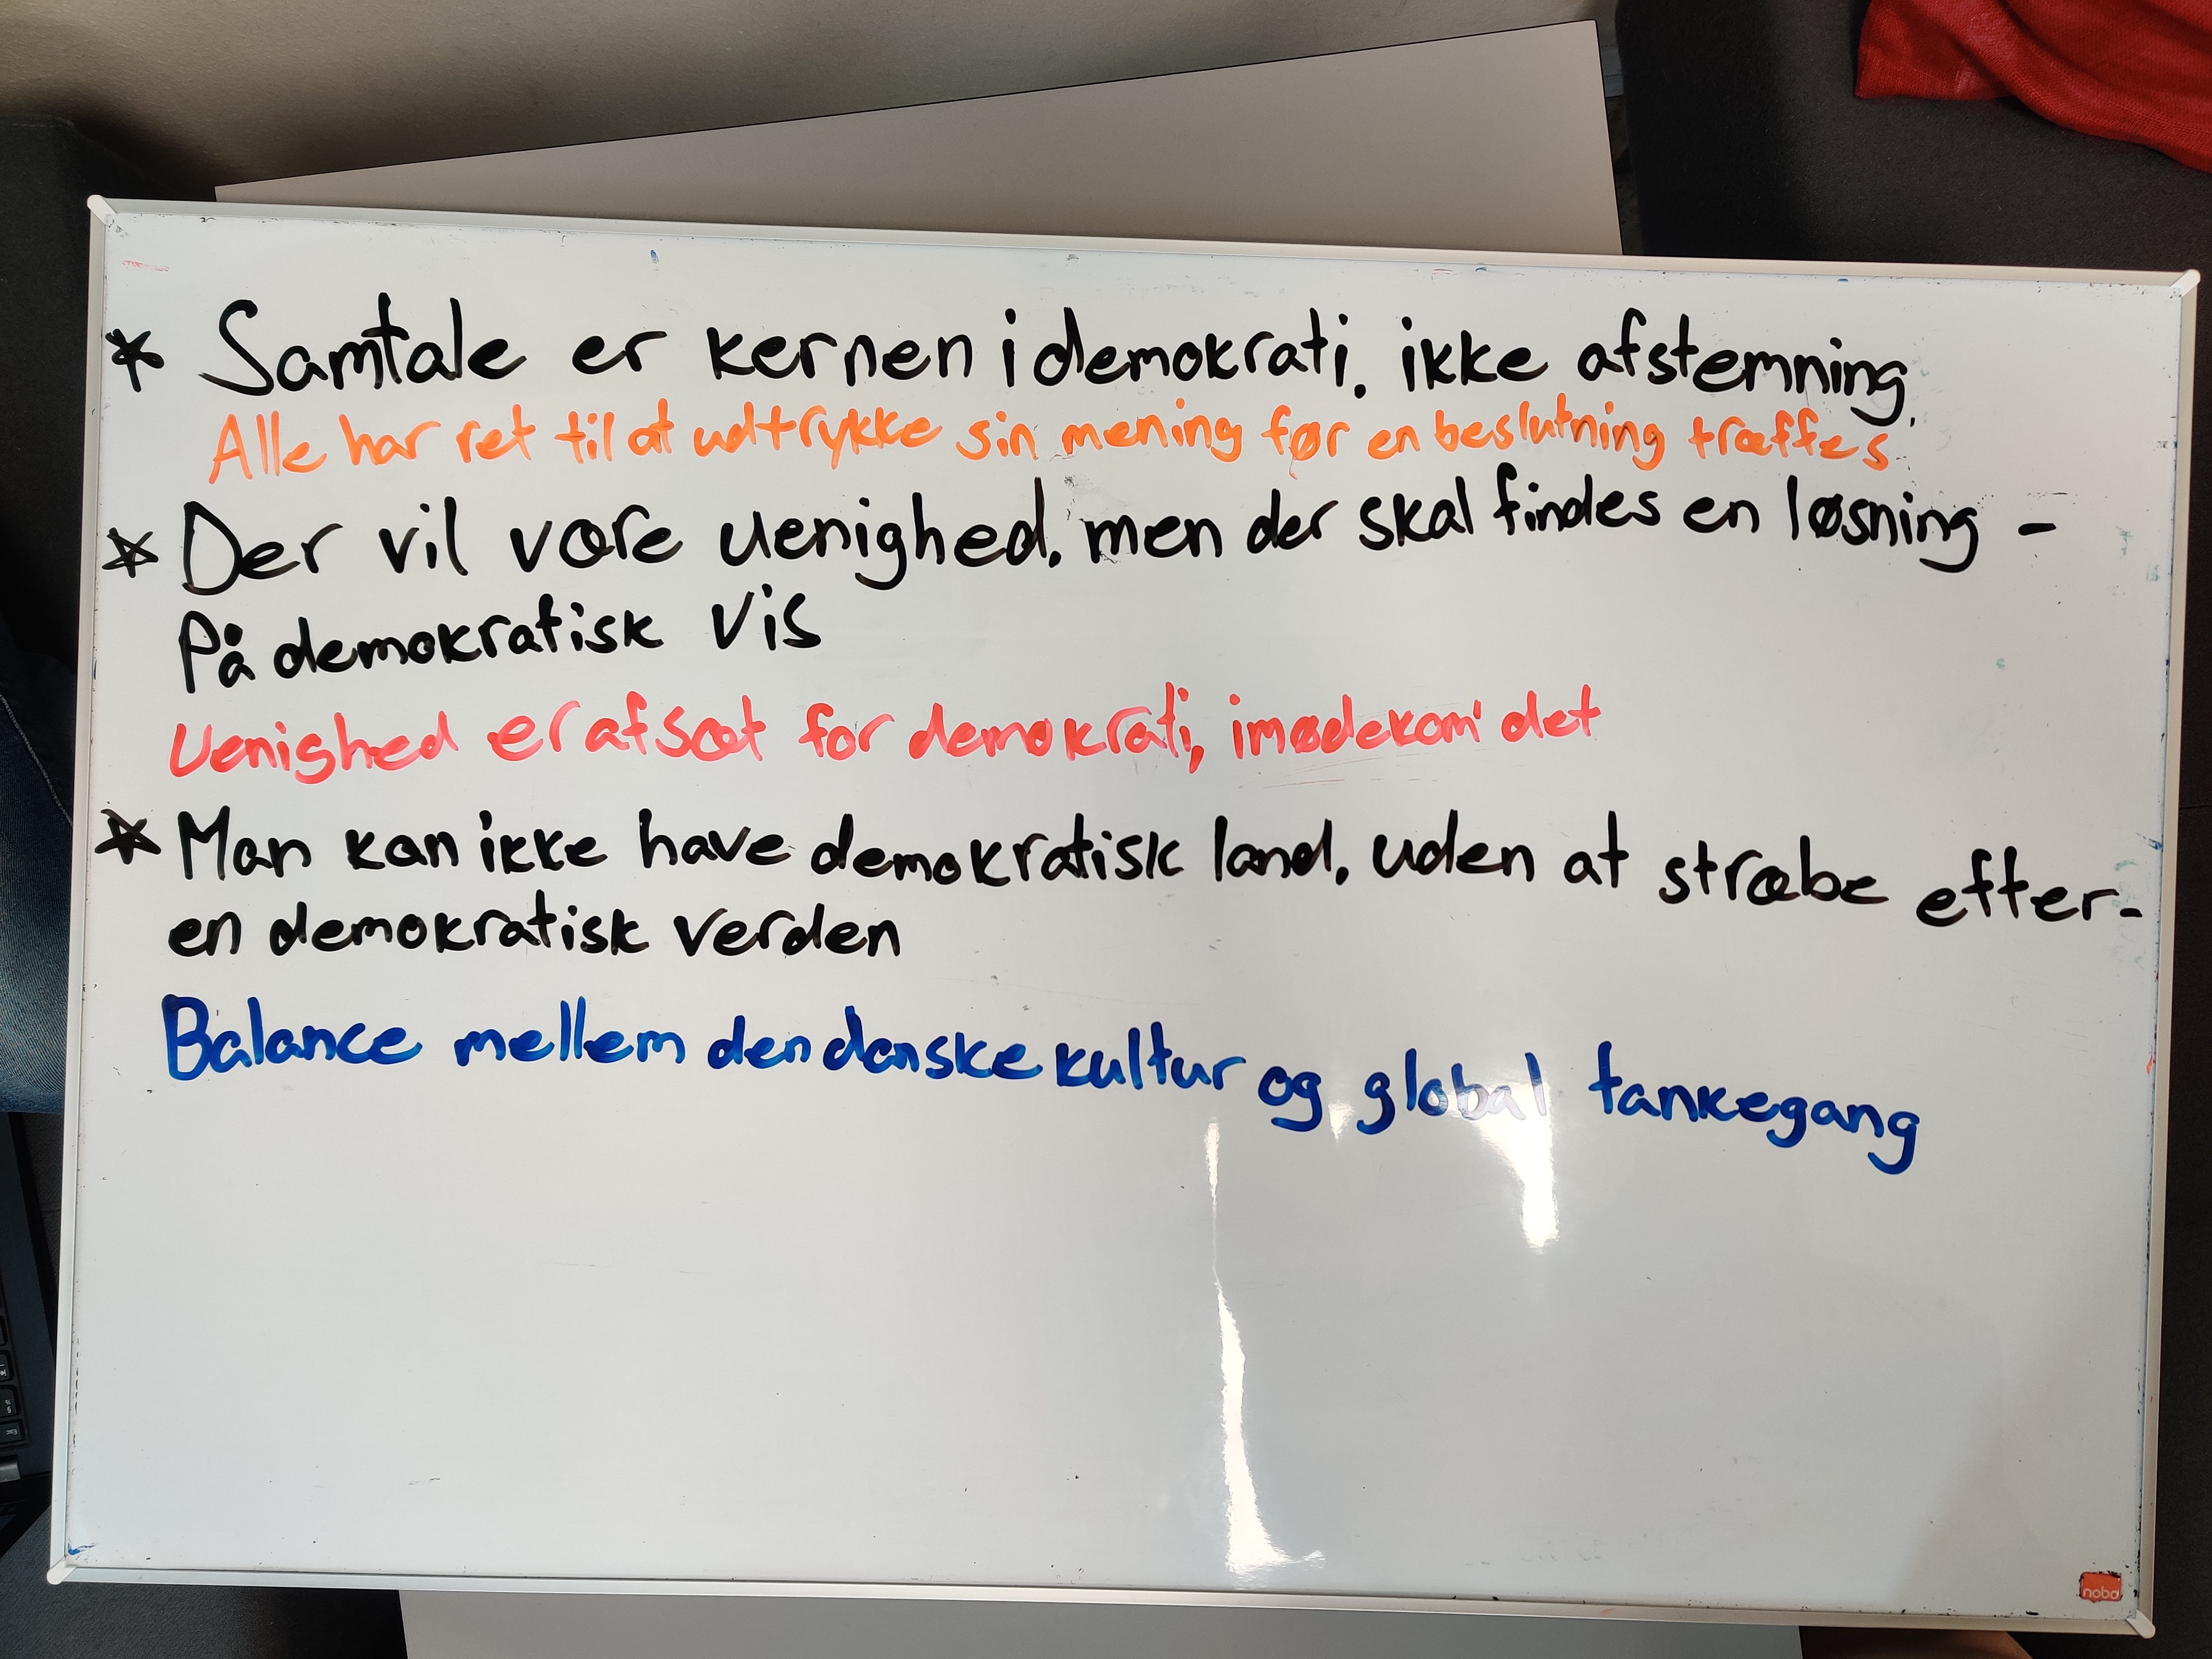 * Samtale er kernen i demokrati, ikke afstemning.
Alle har ret til at udtrykke sin mening før en beslutning træffes
* Der vil være uenighed, men der skal findes en løsning -
På demokratisk vis
Uenighed er afsæt for demokrati, imødekom' det
* Man kan ikke have demokratisk land, uden at stræbe efter-
en demokratisk verden
Balance mellem den danske kultur og global tankegang
nobo